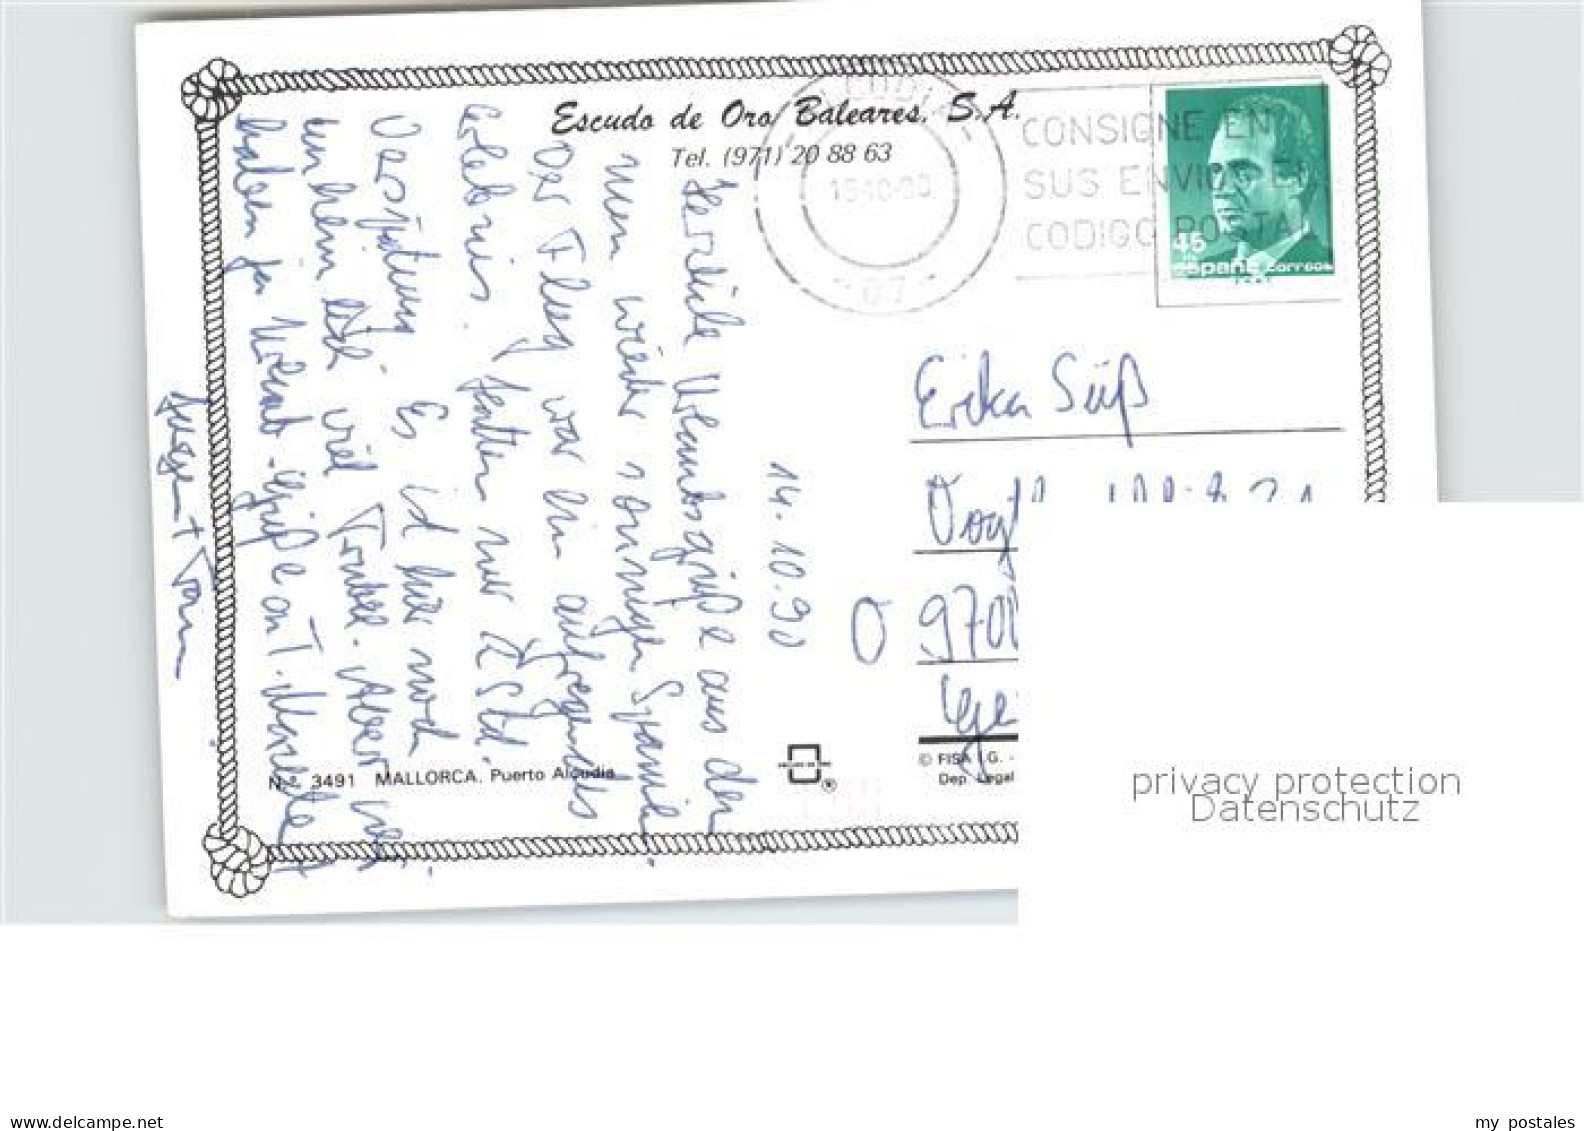 Escudo de Oro Baleares, S.A.
Tel. (971) 20 88 63
CONSIGNE EN
SUS ENVIO
CODIGO POSTA
15-10-90
- 07 -
45
españa correos
14.10.90
Herzliche Urlaubsgrüße aus dem
nun wieder sonnigen Spanien.
Der Flug war ein aufregendes
Erlebnis. Hatten nur 2 Std.
Verspätung. Es ist hier noch
viel Trubel. Aber wir
haben ja Urlaub. Grüße an T. Marcella
Juergen + 
Erika Süß
Vogtl
O 970
N.º 3491 MALLORCA. Puerto Alcudia
© FISA I.G. -
Dep. Legal
privacy protection
Datenschutz
www.delcampe.net
my postales